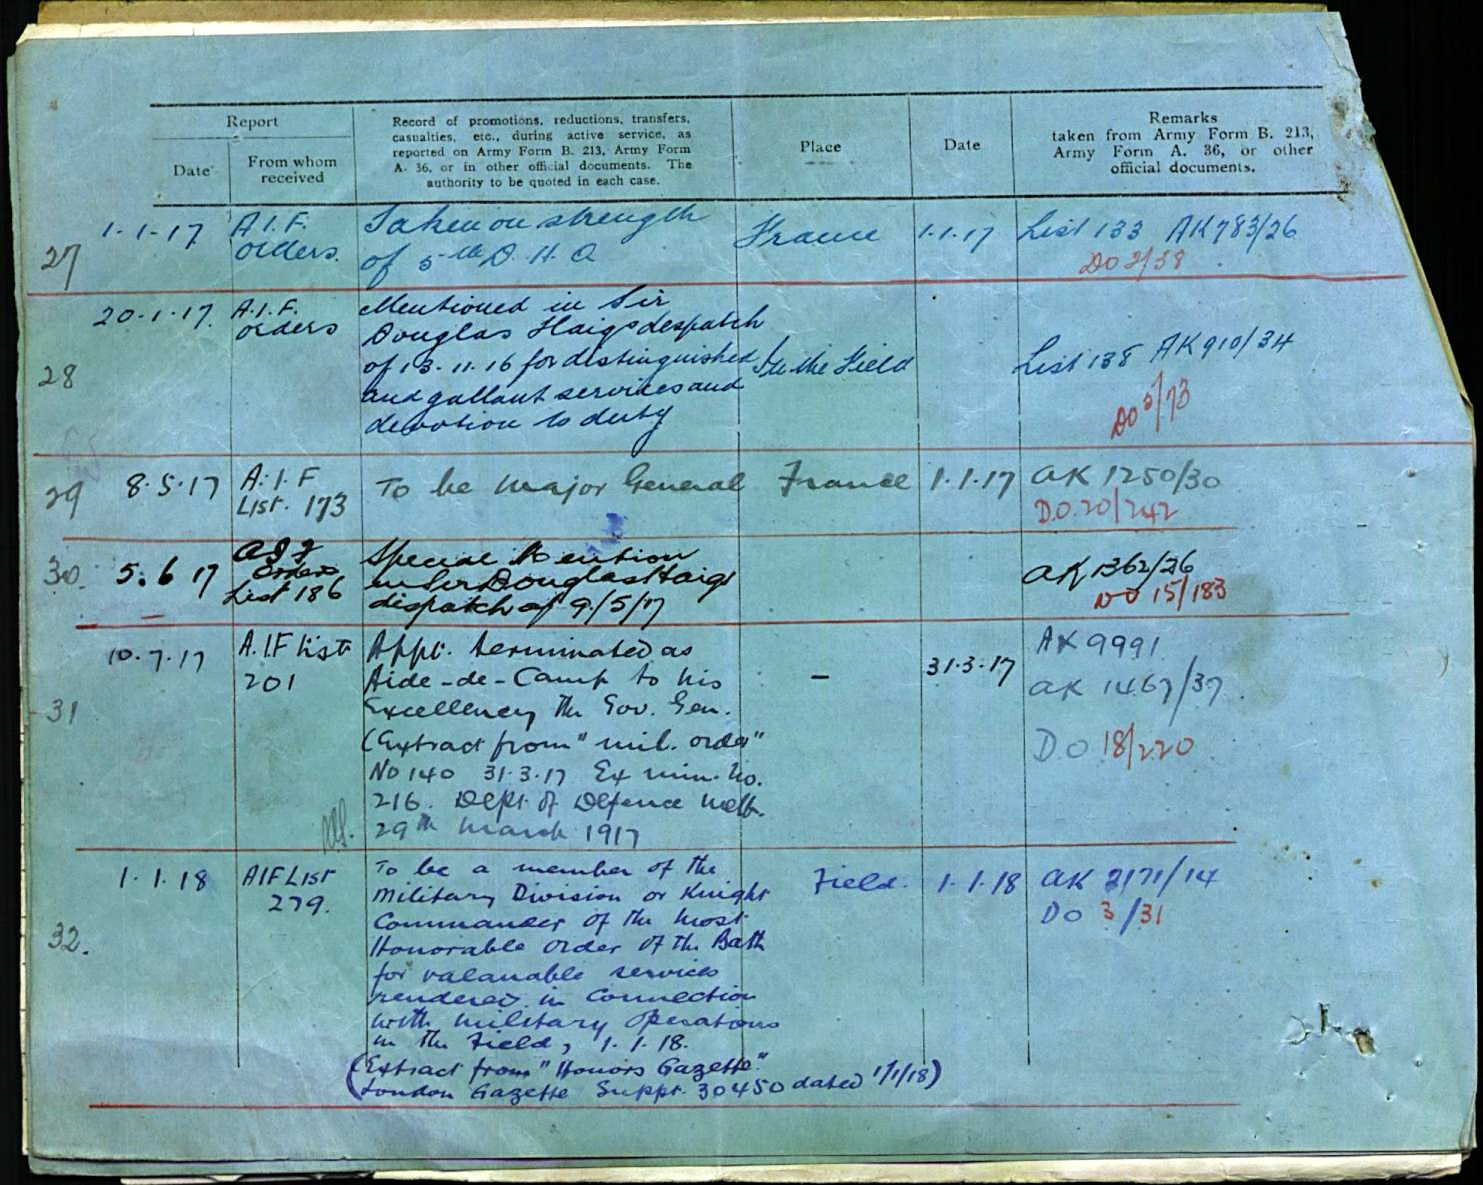 Report
Date
From whom
received
Record of promotions, reductions, transfers,
casualties, etc., during active service, as
reported on Army Form B. 213, Army Form
A. 36, or in other official documents. The
authority to be quoted in each case.
Place
Date
Remarks
taken from Army Form B. 213,
Army Form A. 36, or other
official documents.
27
1.1.17
A.I.F.
orders.
Taken on strength
of 5th D.H.Q
France
1.1.17
List 133 AK783/26
DO 2/58
28
20.1.17
A.I.F.
orders
Mentioned in Sir
Douglas Haigs despatch
of 13.11.16 for distinguished
and gallant services and
devotion to duty
In the Field
List 138 AK910/34
DO 5/73
29
8.5.17
A.I.F
List. 173
To be Major General
France
1.1.17
AK 1250/30
D.O. 20/242
30.
5.6 17
AIF
Orders
List 186
Special Mention
in Sir Douglas Haigs
dispatch of 9/5/17
AK 1362/26
DO 15/183
31
10.7.17
A.I.F list
201
Appt. terminated as
Aide-de-Camp to his
Excellency the Gov. Gen.
(Extract from "mil. order"
No 140 31.3.17 Ex min. No.
216. Dept. of Defence Melb.
29th March 1917
-
31.3.17
AK 9991
AK 1467/37
DO 18/220
32.
1.1.18
AIF List
279.
To be a member of the
Military Division or Knight
Commander of the Most
Honorable Order of the Bath
for valanable services
rendered in connection
with military operations
in the Field, 1.1.18.
(Extract from "Honors Gazette"
London Gazette Suppt. 30450 dated 1/1/18)
Field.
1.1.18
AK 2171/14
DO 3/31